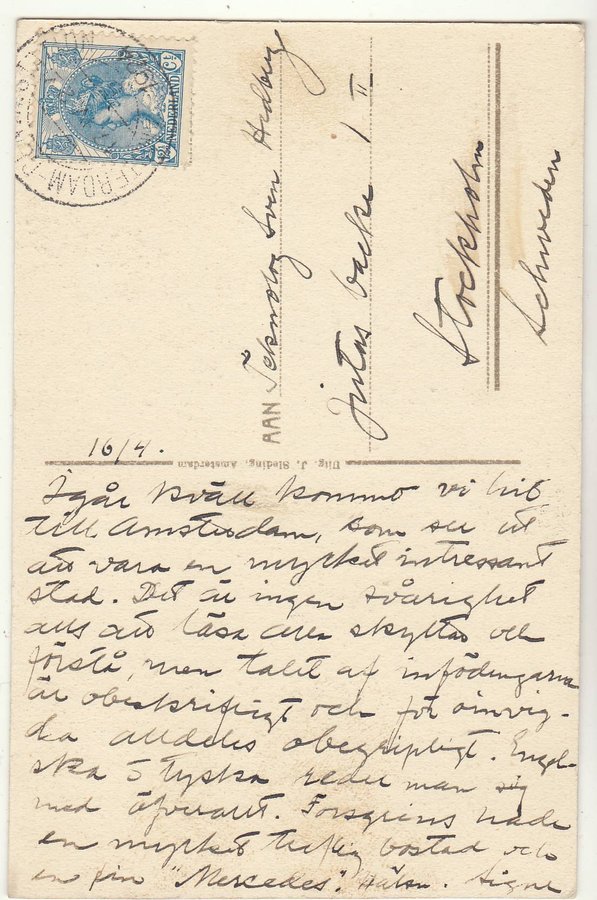 NEDERLAND
12½ Ct
AAN Teknolog Sven Hedberg
Jutas backe 1 II
Stockholm
Schweden
Uitg. J. Sleding, Amsterdam
16/4.
Igår kväll kommo vi hit
till Amsterdam, som ser ut
att vara en mycket intressant
stad. Det är ingen svårighet
alls att läsa skyltar och
förstå, men talet af infödingarna
är obeskrifligt och för oinvig-
da alldeles obegripligt. Engel-
ska o tyska reder man sig
med öfverallt. Forsgrens hade
en mycket treflig bostad och
en fin "Mercedes". Hälsn. Signe